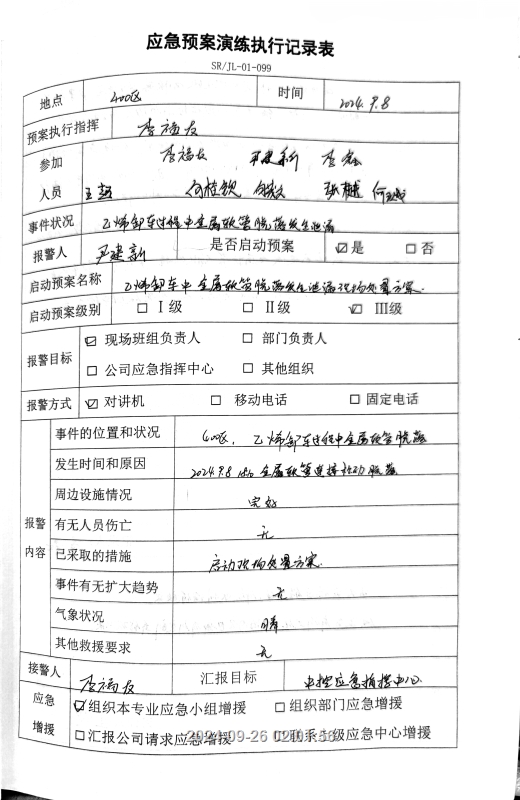 应急预案演练执行记录表
SR/JL-01-099
地点 400区 时间 2024.9.8
预案执行指挥 李福友
参加 李福友
人员
事件状况 乙烯卸车过程中金属软管脱落发生泄漏
报警人 尹建新 是否启动预案 ☑是 □否
启动预案名称 乙烯卸车中金属软管脱落发生泄漏现场处置方案.
启动预案级别 □ Ⅰ级 □ Ⅱ级 ☑ Ⅲ级
报警目标 ☑ 现场班组负责人 □ 部门负责人
□ 公司应急指挥中心 □ 其他组织
报警方式 ☑ 对讲机 □ 移动电话 □ 固定电话
报警内容 事件的位置和状况 400区, 乙烯卸车过程中金属软管脱落
发生时间和原因 2024.9.8 金属软管连接松动脱落
周边设施情况 完好
有无人员伤亡 无
已采取的措施 启动现场处置方案.
事件有无扩大趋势 无
气象状况 晴
其他救援要求 无
接警人 李福友 汇报目标 中控应急指挥中心
应急增援 ☑组织本专业应急小组增援 □组织部门应急增援
□汇报公司请求应急增援 □联系上级应急中心增援
2024-09-26 02:01:56